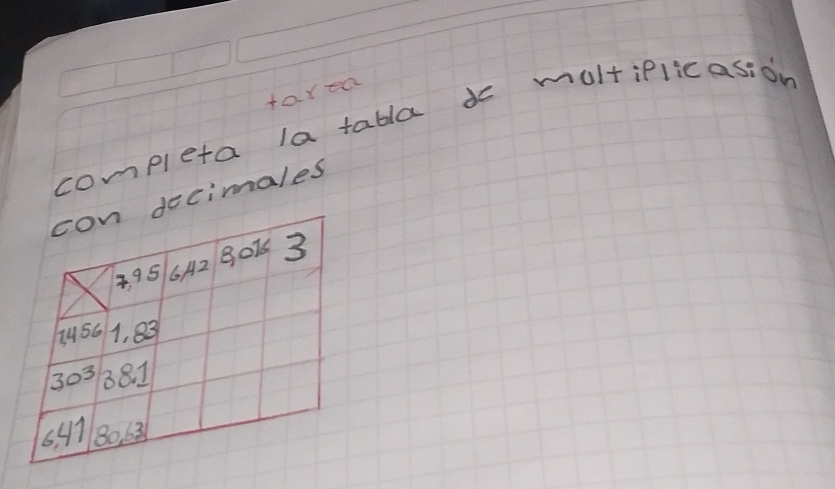 tarea
completa la tabla de moltiplicasión
con decimales
7,95 6,42 8,016 3
7,456 1,83
303 38,1
6,41 80,63